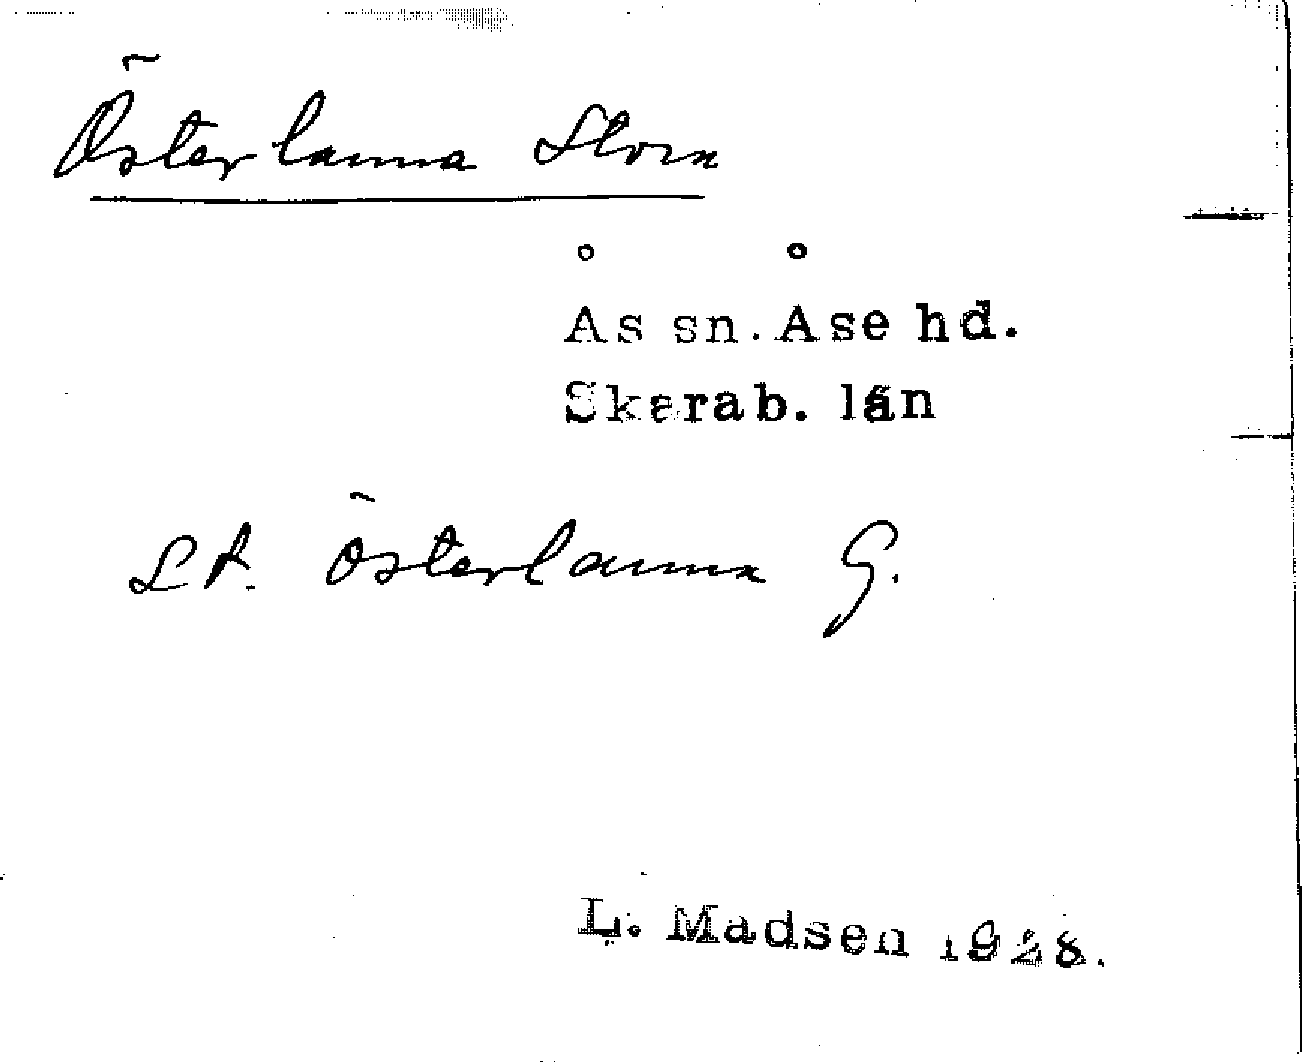 Österlanna Stora
Ås sn. Åse hd.
Skarab. län
St. Österlanna G.
L. Madsen 1928.